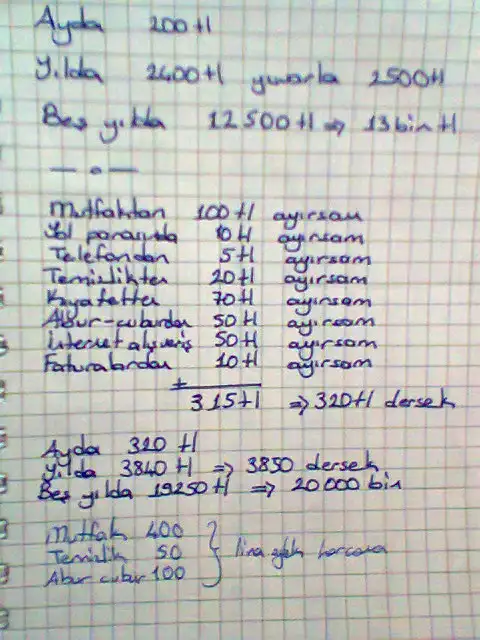 Ayda 200 tl
Yılda 2400 tl yuvarla 2500 tl
Beş yılda 12500 tl => 13 bin tl
— o —
Mutfaktan 100 tl ayırsam
Yol parasında 10 tl ayırsam
Telefondan 5 tl ayırsam
Temizlikten 20 tl ayırsam
Kıyafetten 70 tl ayırsam
Abur-cuburdan 50 tl ayırsam
internet alışveriş 50 tl ayırsam
Faturalardan 10 tl ayırsam
+
315 tl => 320 tl dersek
Ayda 320 tl
Yılda 3840 tl => 3850 dersek
Beş yılda 19250 tl => 20 000 bin
Mutfak 400
Temizlik 50
Abur cubur 100
harcama